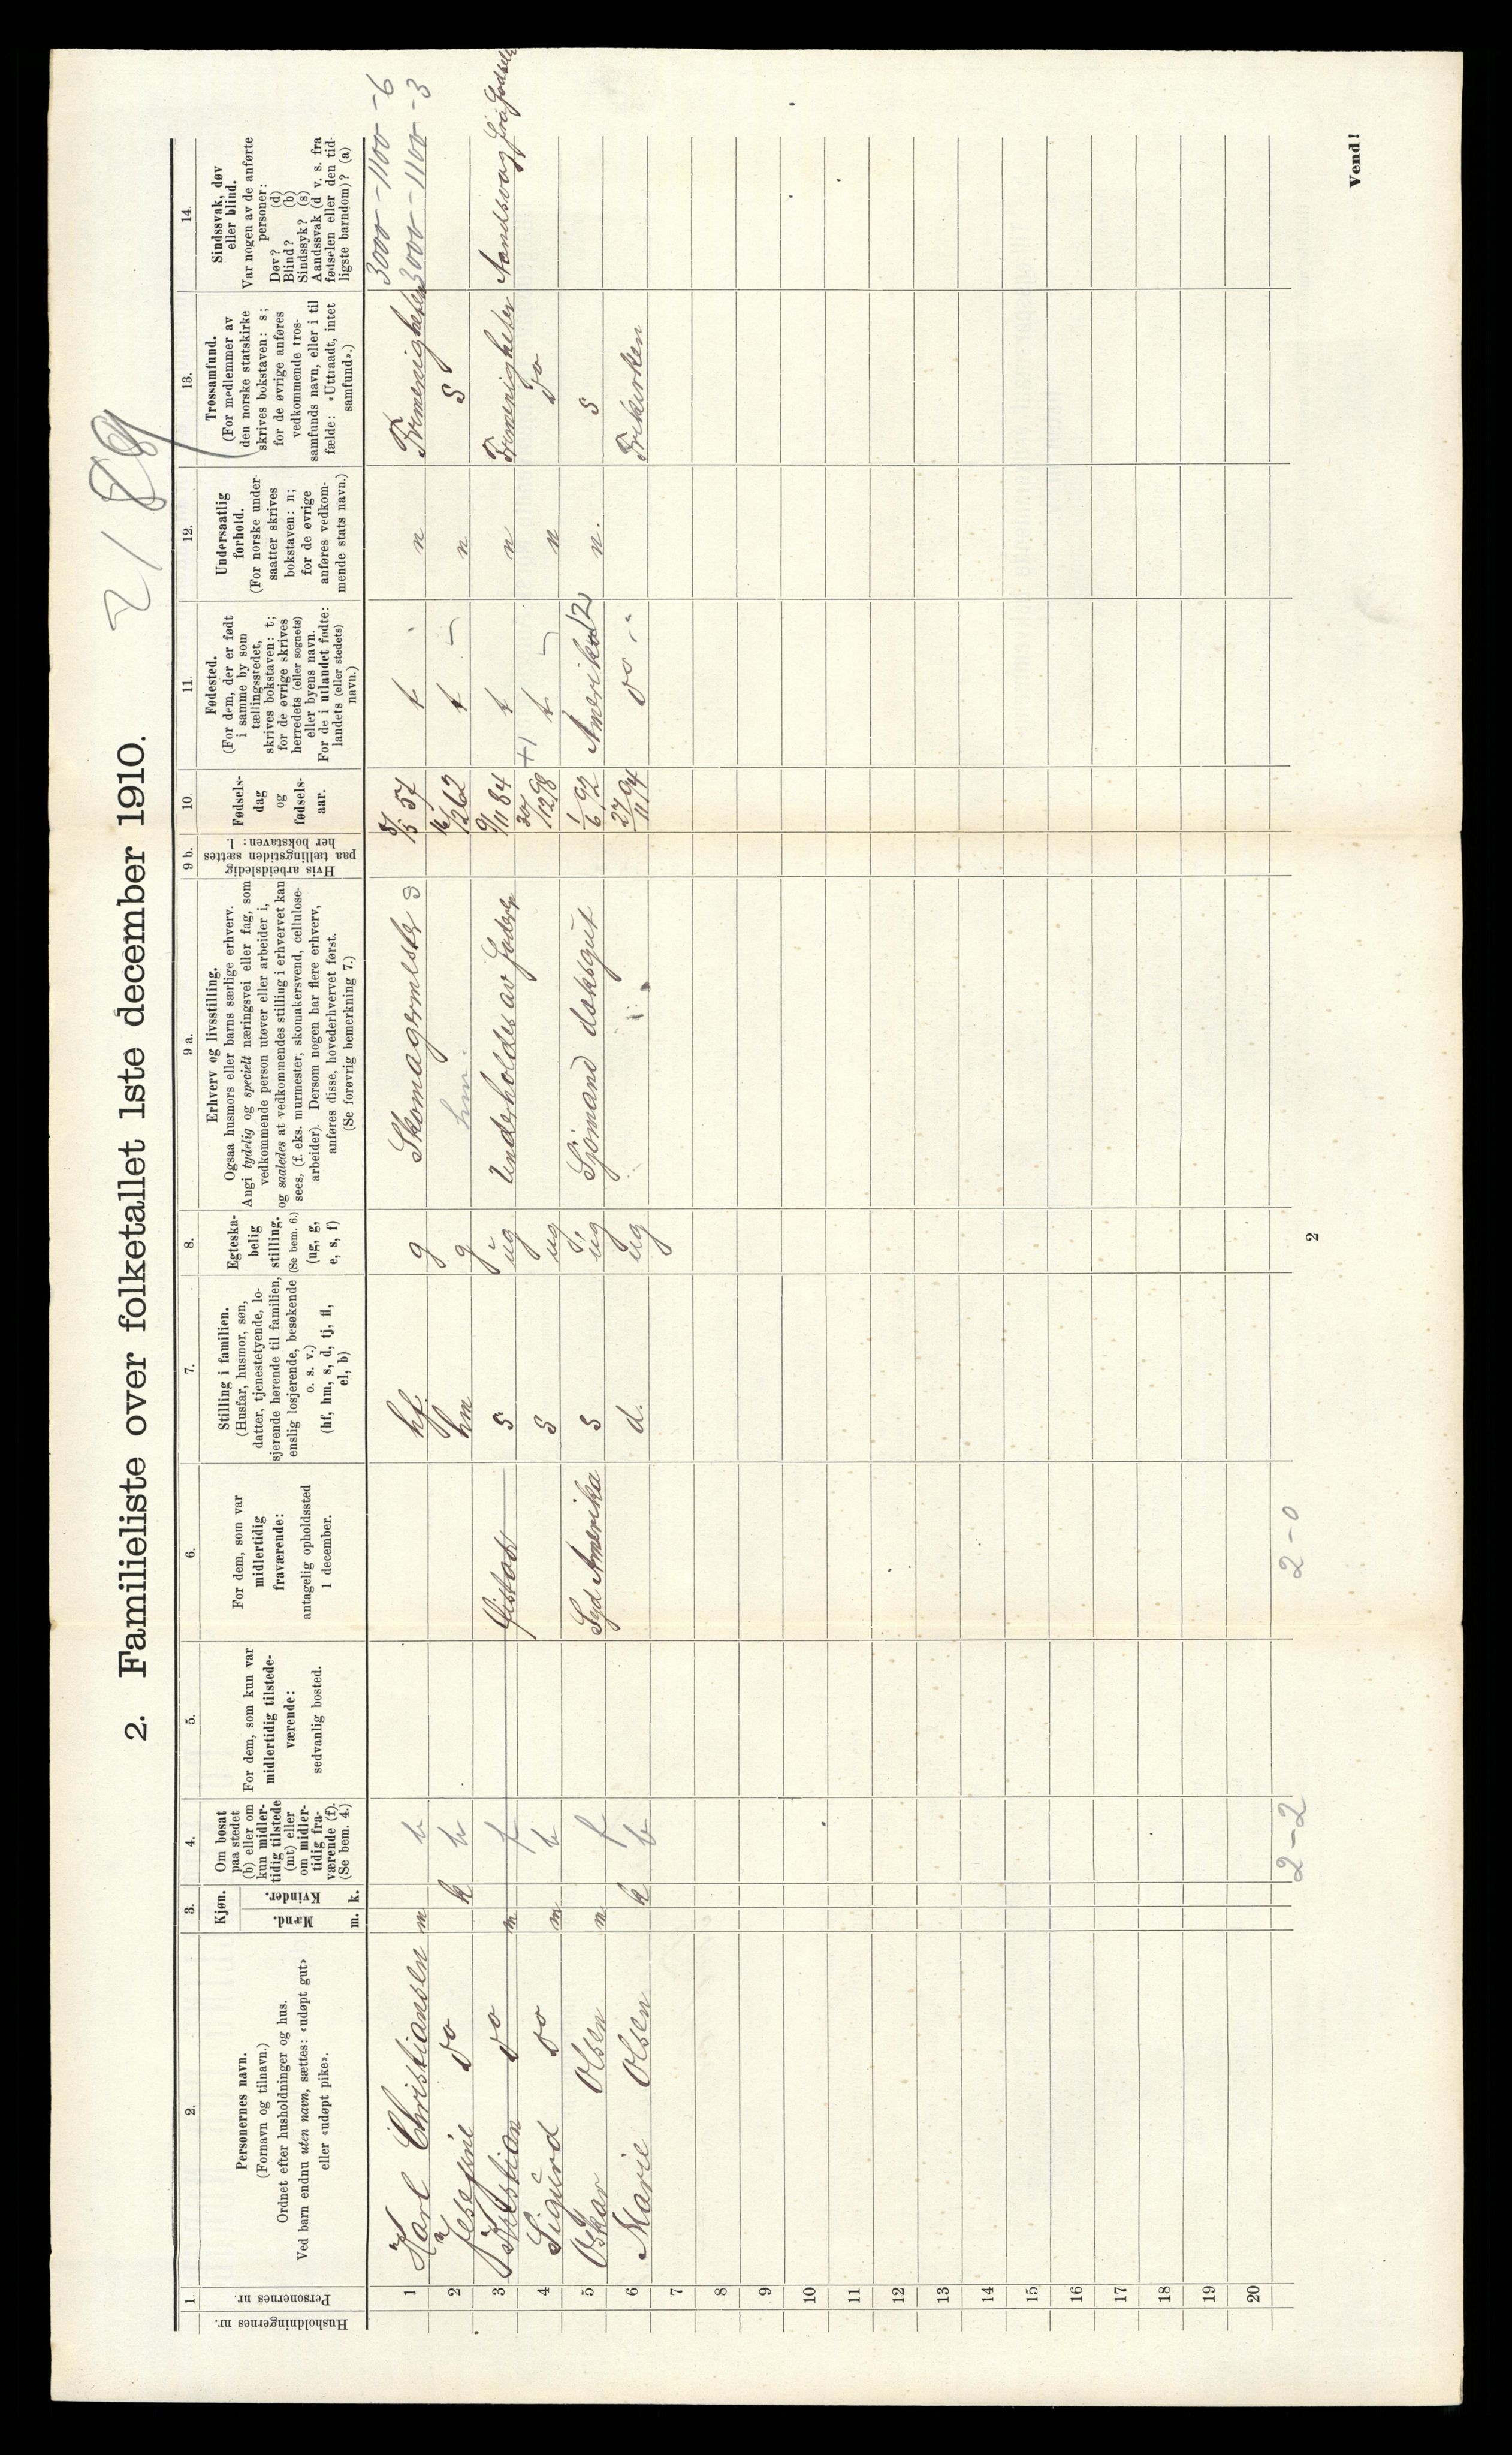 2189
2. Familieliste over folketallet 1ste december 1910.
Husholdningernes nr.
1. Personernes nr.
2. Personernes navn.
(Fornavn og tilnavn.)
Ordnet efter husholdninger og hus.
Ved barn endnu uten navn, sættes: «udøpt gut»
eller «udøpt pike».
3. Kjøn.
Mænd. m.
Kvinder. k.
4. Om bosat
paa stedet
(b) eller om
kun midler-
tidig tilstede
(mt) eller
om midler-
tidig fra-
værende (f).
(Se bem. 4.)
5. For dem, som kun var
midlertidig tilstede-
værende:
sedvanlig bosted.
6. For dem, som var
midlertidig
fraværende:
antagelig opholdssted
1 december.
7. Stilling i familien.
(Husfar, husmor, søn,
datter, tjenestetyende, lo-
sjerende hørende til familien,
enslig losjerende, besøkende
o. s. v.)
(hf, hm, s, d, tj, fl,
el, b)
8. Egteska-
belig
stilling.
(Se bem. 6.)
(ug, g,
e, s, f)
9 a. Erhverv og livsstilling.
Ogsaa husmors eller barns særlige erhverv.
Angi tydelig og specielt næringsvei eller fag, som
vedkommende person utøver eller arbeider i,
og saaledes at vedkommendes stilling i erhvervet kan
sees, (f. eks. murmester, skomakersvend, cellulose-
arbeider). Dersom nogen har flere erhverv,
anføres disse, hovederhvervet først.
(Se forøvrig bemerkning 7.)
9 b. Hvis arbeidsledig
paa tællingstiden sættes
her bokstaven: l.
10. Fødsels-
dag
og
fødsels-
aar.
11. Fødested.
(For dem, der er født
i samme by som
tællingsstedet,
skrives bokstaven: t;
for de øvrige skrives
herredets (eller sognets)
eller byens navn.
For de i utlandet fødte:
landets (eller stedets)
navn.)
12. Undersaatlig
forhold.
(For norske under-
saatter skrives
bokstaven: n;
for de øvrige
anføres vedkom-
mende stats navn.)
13. Trossamfund.
(For medlemmer av
den norske statskirke
skrives bokstaven: s;
for de øvrige anføres
vedkommende tros-
samfunds navn, eller i til-
fælde: «Uttraadt, intet
samfund».)
14. Sindssvak, døv
eller blind.
Var nogen av de anførte
personer:
Døv? (d)
Blind? (b)
Sindssyk? (s)
Aandssvak (d v. s. fra
fødselen eller den tid-
ligste barndom)? (a)
1 Karl Christiansen m b hf g Skomagermester 3 57 t n 3000-1100-6
2 Josefine Do k b hm g hm 16/12 62 t n S 3000-1100-3
3 Kristian Do m f s ug Underholdes av 9/11 84 t n Fremenigheten Aandsvag
4 Sigurd Do m b s ug 20/12 98 t n Do
5 Oskar Olsen m f Syd Amerika s ug Sjömand daksgut 1/6 92 Amerika n. S
6 Marie Olsen k b d. ug 27/11 94 Do Frikirken
7
8
9
10
11
12
13
14
15
16
17
18
19
20
2-2
2-0
2
Vend!